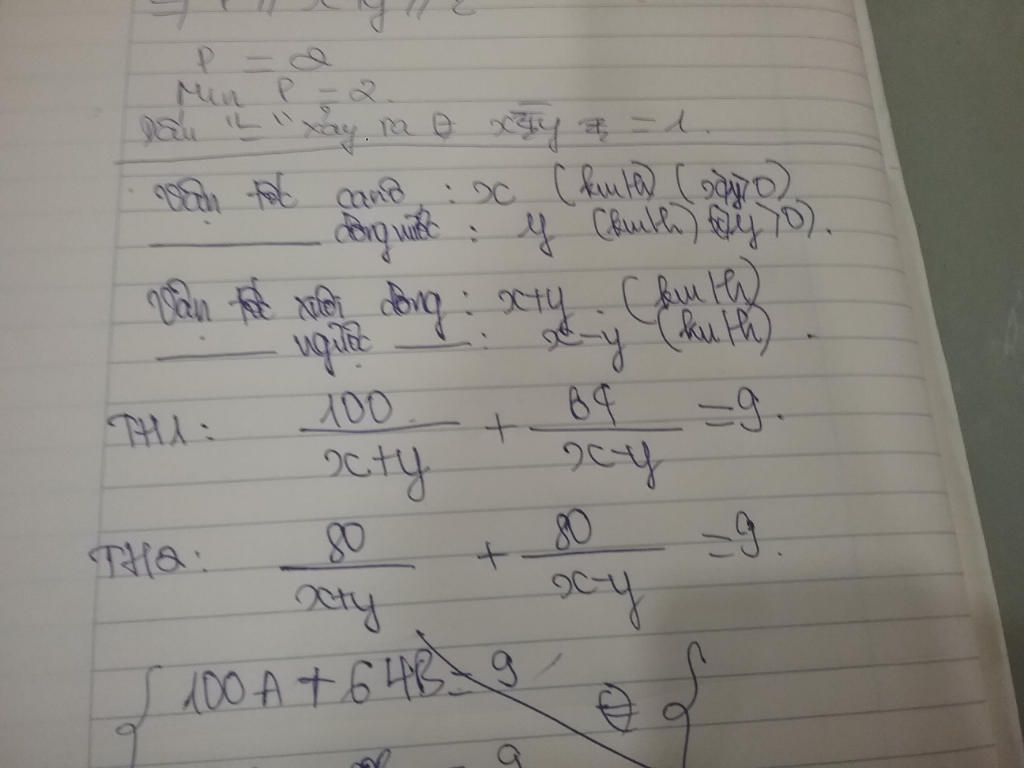 P = 2
Min P = 2.
Dấu "=" xảy ra ⇔ = 1.
Vận tốc cano : x (km/h) (x>y>0)
dòng nước : y (km/h) (y>0).
Vận tốc xuôi dòng : x+y. (km/h)
ngược : x-y (km/h).
TH1: 100/(x+y) + 64/(x-y) = 9.
TH2: 80/(x+y) + 80/(x-y) = 9.
{ 100A + 64B = 9 ⇔ {
= 9